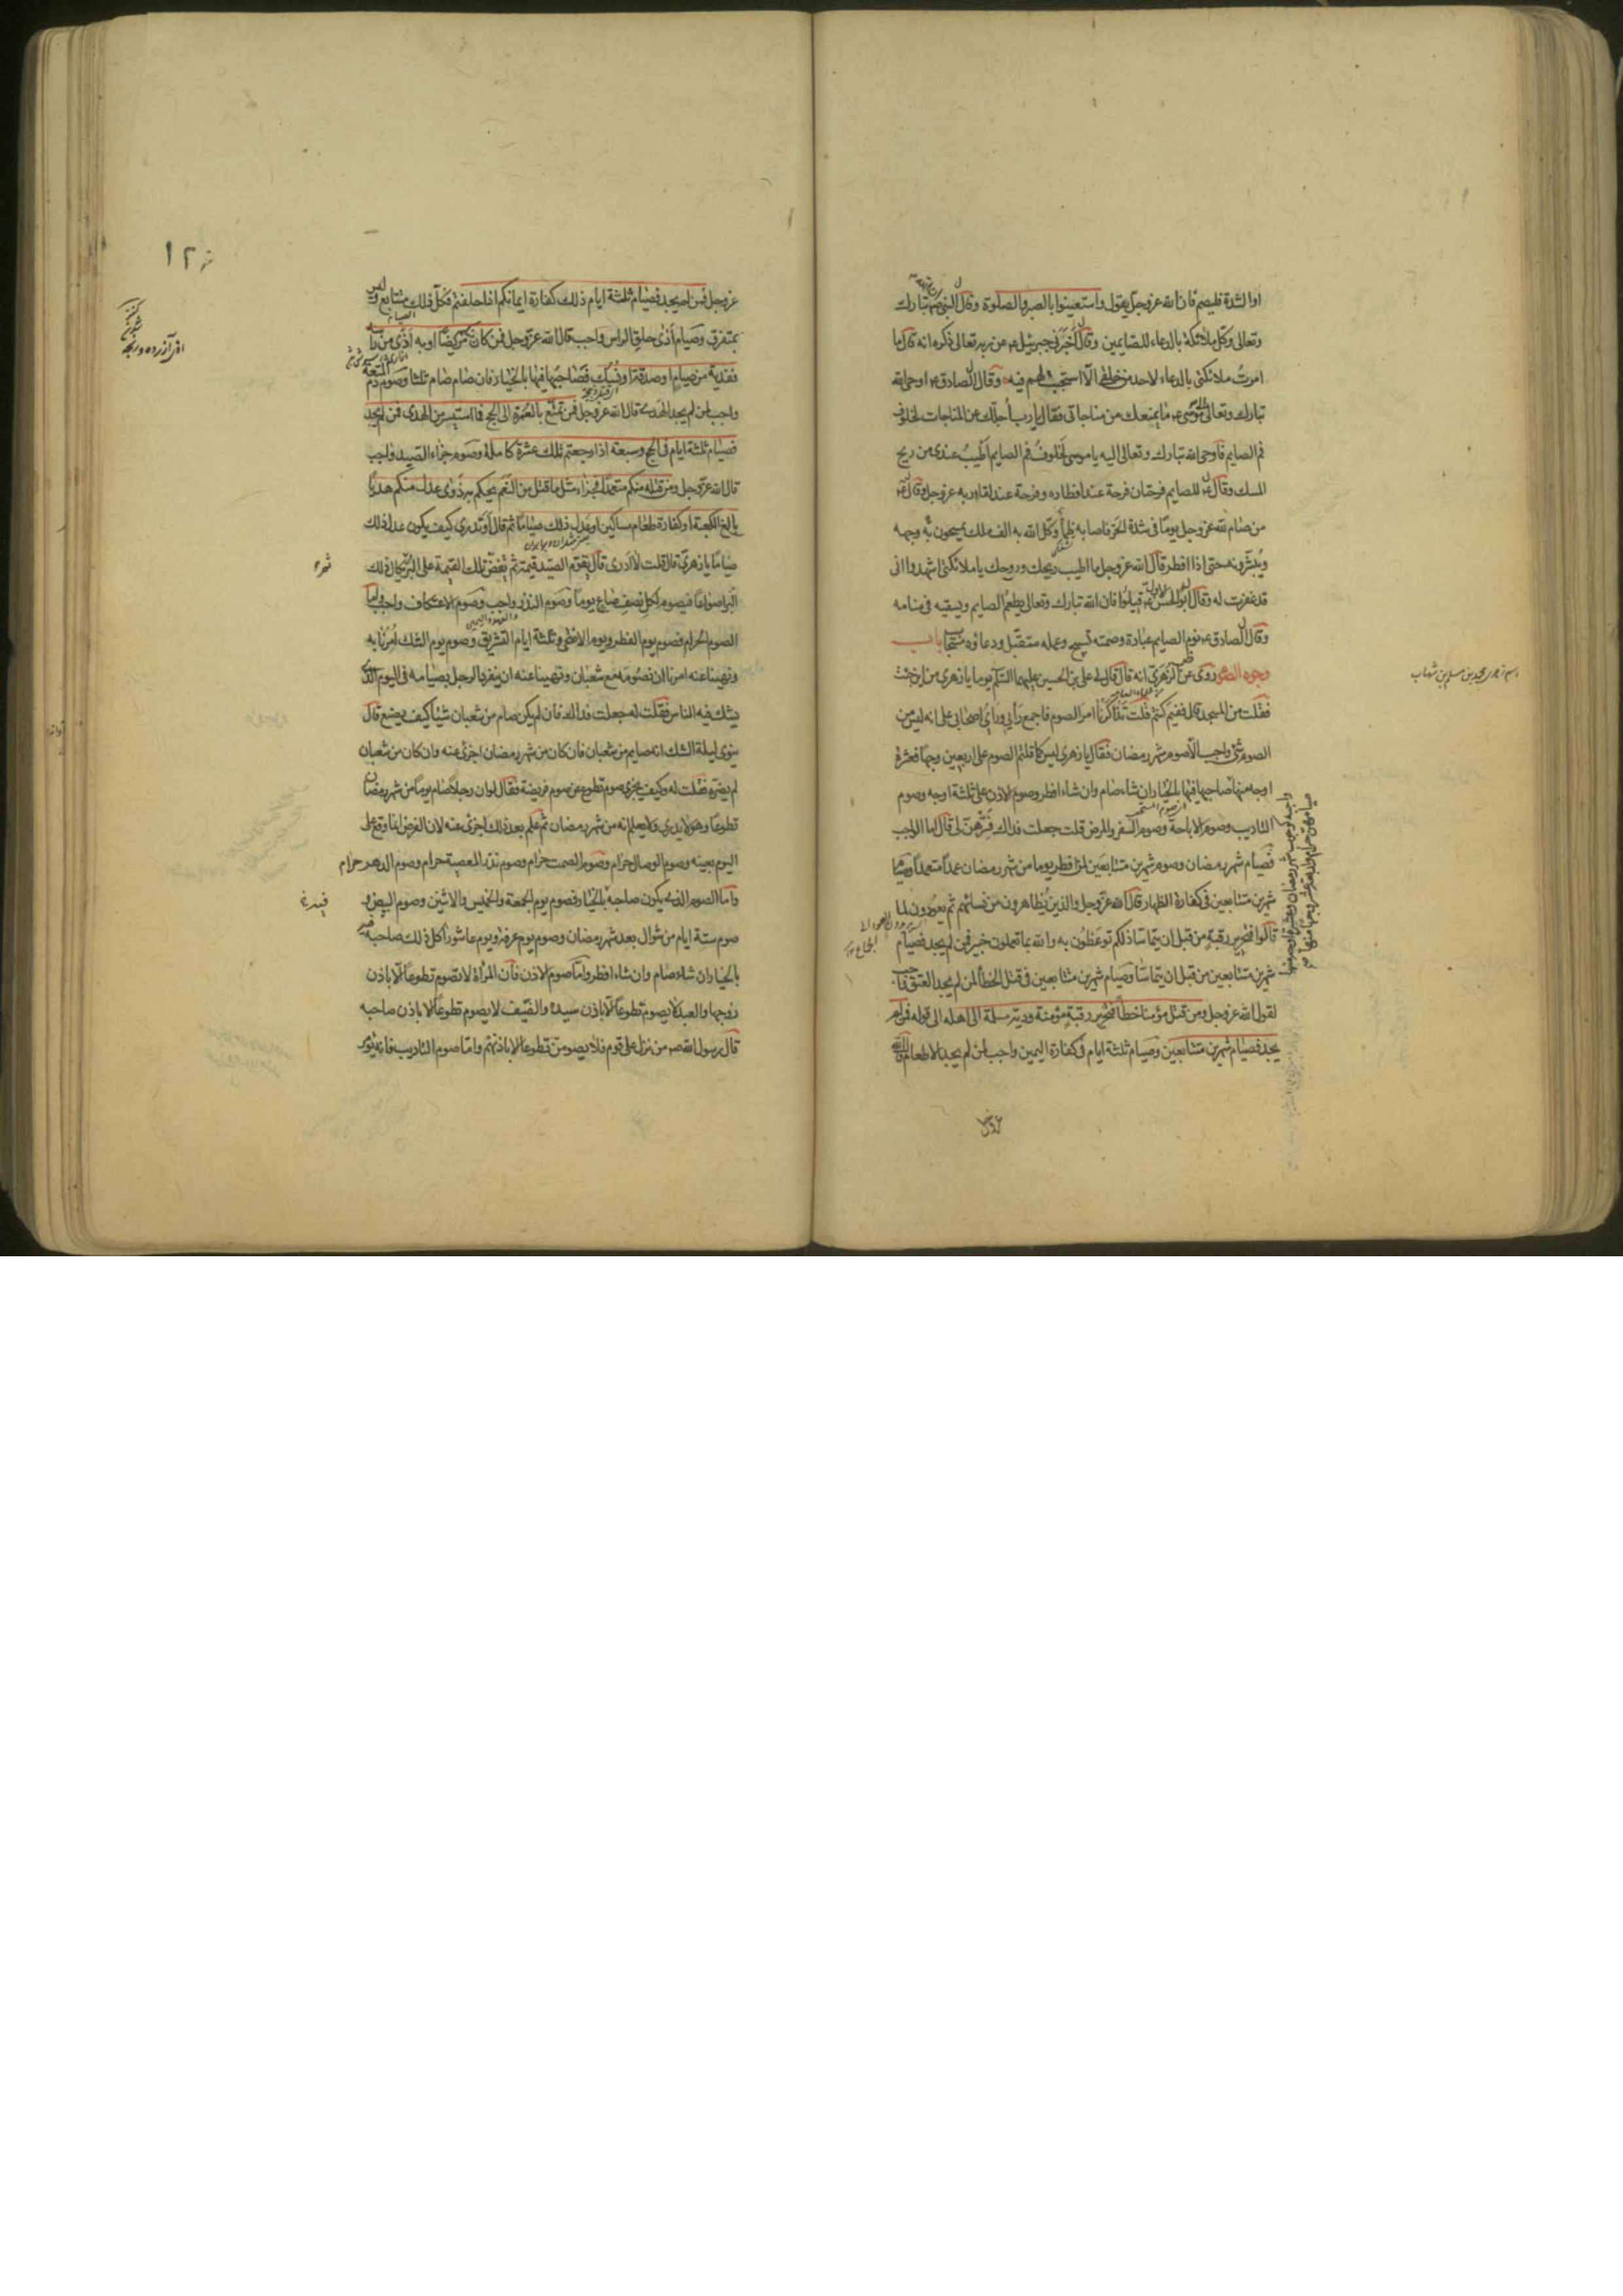 او الشدة فليصم فان الله عز وجل يقول واستعينوا بالصبر والصلوة وقال النبي ص ان الله تبارك
وتعالى وكل ملائكة بالدعاء للصايمين وقال أخبرني جبرئيل ع عن ربه تعالى ذكره انه قال ما
امرت ملائكتي بالدعاء لاحد من خلقي الا استجبت لهم فيه وقال الصادق ع اوحى الله
تبارك وتعالى الى موسى ع ما يمنعك من مناجاتي فقال يا رب أجلك عن المناجات لخلوف
فم الصايم فاوحى الله تبارك وتعالى اليه يا موسى لخلوف فم الصايم أطيب عندي من ريح
المسك وقال ع للصايم فرحتان فرحة عند افطاره وفرحة عند لقاء ربه عز وجل وقال ع
من صام لله عز وجل يوما في شدة الحر فاصابه ظمأ وكل الله به الف ملك يمسحون به وجهه
ويبشرونه حتى اذا افطر قال الله عز وجل ما اطيب ريحك وروحك يا ملائكتي اشهدوا اني
قد غفرت له وقال ابو الحسن الاول ع قيلوا فان الله تبارك وتعالى يطعم الصايم ويسقيه في منامه
وقال الصادق ع نوم الصايم عبادة وصمته تسبيح وعمله متقبل ودعاؤه مستجاب باب
وجوه الصوم روى عن الزهري انه قال قال لي علي بن الحسين عليهما السلام يوما يا زهري من اين جئت
فقلت من المسجد قال ففيم كنتم قلت تذاكرنا امر الصوم فاجمع رأيي ورأي اصحابي على انه ليس من
الصوم شئ واجب الا صوم شهر رمضان فقال يا زهري ليس كما قلتم الصوم على اربعين وجها فعشرة
اوجه منها صاحبها فيها بالخيار ان شاء صام وان شاء افطر وصوم الاذن على ثلثة اوجه وصوم
التاديب وصوم الاباحة وصوم السفر والمرض قلت جعلت فداك فسرهن لي قال اما الواجب
فصيام شهر رمضان وصوم شهرين متتابعين لمن افطر يوما من شهر رمضان عمدا متعمدا وصيام
شهرين متتابعين في كفارة الظهار قال الله عز وجل والذين يظاهرون من نسائهم ثم يعودون لما
قالوا فتحرير رقبة من قبل ان يتماسا ذلكم توعظون به والله بما تعملون خبير فمن لم يجد فصيام
شهرين متتابعين من قبل ان يتماسا وصيام شهرين متتابعين في قتل الخطأ لمن لم يجد العتق واجب
لقول الله عز وجل ومن قتل مؤمنا خطأ فتحرير رقبة مؤمنة ودية مسلمة الى اهله الى قوله فمن لم
يجد فصيام شهرين متتابعين وصيام ثلثة ايام في كفارة اليمين واجب لمن لم يجد الاطعام قال الله
عز وجل فمن لم يجد فصيام ثلثة ايام ذلك كفارة ايمانكم اذا حلفتم فكل ذلك متتابع وليس
بمتفرق وصيام أذى حلق الراس واجب قال الله عز وجل فمن كان منكم مريضا او به أذى من رأسه
ففدية من صيام او صدقة او نسك فصاحبها فيها بالخيار فان صام صام ثلثا وصوم دم المتعة
واجب لمن لم يجد الهدى قال الله عز وجل فمن تمتع بالعمرة الى الحج فما استيسر من الهدى فمن لم يجد
فصيام ثلثة ايام في الحج وسبعة اذا رجعتم تلك عشرة كاملة وصوم جزاء الصيد واجب
قال الله عز وجل ومن قتله منكم متعمدا فجزاء مثل ما قتل من النعم يحكم به ذوى عدل منكم هديا
بالغ الكعبة او كفارة طعام مساكين او عدل ذلك صياما ثم قال أوتدري كيف يكون عدل ذلك
صياما يا زهري قال قلت لا ادرى قال يقوم الصيد قيمة ثم تفض تلك القيمة على البر ثم يكال ذلك
البر اصواعا فيصوم لكل نصف صاع يوما وصوم النذر واجب وصوم الاعتكاف واجب واما
الصوم الحرام فصوم يوم الفطر ويوم الاضحى وثلثة ايام التشريق وصوم يوم الشك امرنا به
ونهينا عنه امرنا ان نصومه مع شعبان ونهينا عنه ان ينفرد الرجل بصيامه في اليوم الذي
يشك فيه الناس فقلت له جعلت فداك فان لم يكن صام من شعبان شيئا كيف يصنع قال
ينوى ليلة الشك انه صايم من شعبان فان كان من شهر رمضان اجزئ عنه وان كان من شعبان
لم يضره فقلت له وكيف يجزى صوم تطوع عن صوم فريضة فقال لو ان رجلا صام يوما من شهر رمضان
تطوعا وهو لا يدري ولا يعلم انه من شهر رمضان ثم علم بعد ذلك اجزئ عنه لان الفرض انما وقع على
اليوم بعينه وصوم الوصال حرام وصوم الصمت حرام وصوم نذر المعصية حرام وصوم الدهر حرام
واما الصوم الذي يكون صاحبه بالخيار فصوم يوم الجمعة والخميس والاثنين وصوم البيض و
صوم ستة ايام من شوال بعد شهر رمضان وصوم يوم عرفة ويوم عاشورا كل ذلك صاحبه فيه
بالخيار ان شاء صام وان شاء افطر واما صوم الاذن فان المرأة لا تصوم تطوعا الا باذن
زوجها والعبد لا يصوم تطوعا الا باذن سيده والضيف لا يصوم تطوعا الا باذن صاحبه
قال رسول الله ص من نزل على قوم فلا يصومن تطوعا الا باذنهم واما صوم التاديب فانه يؤمر